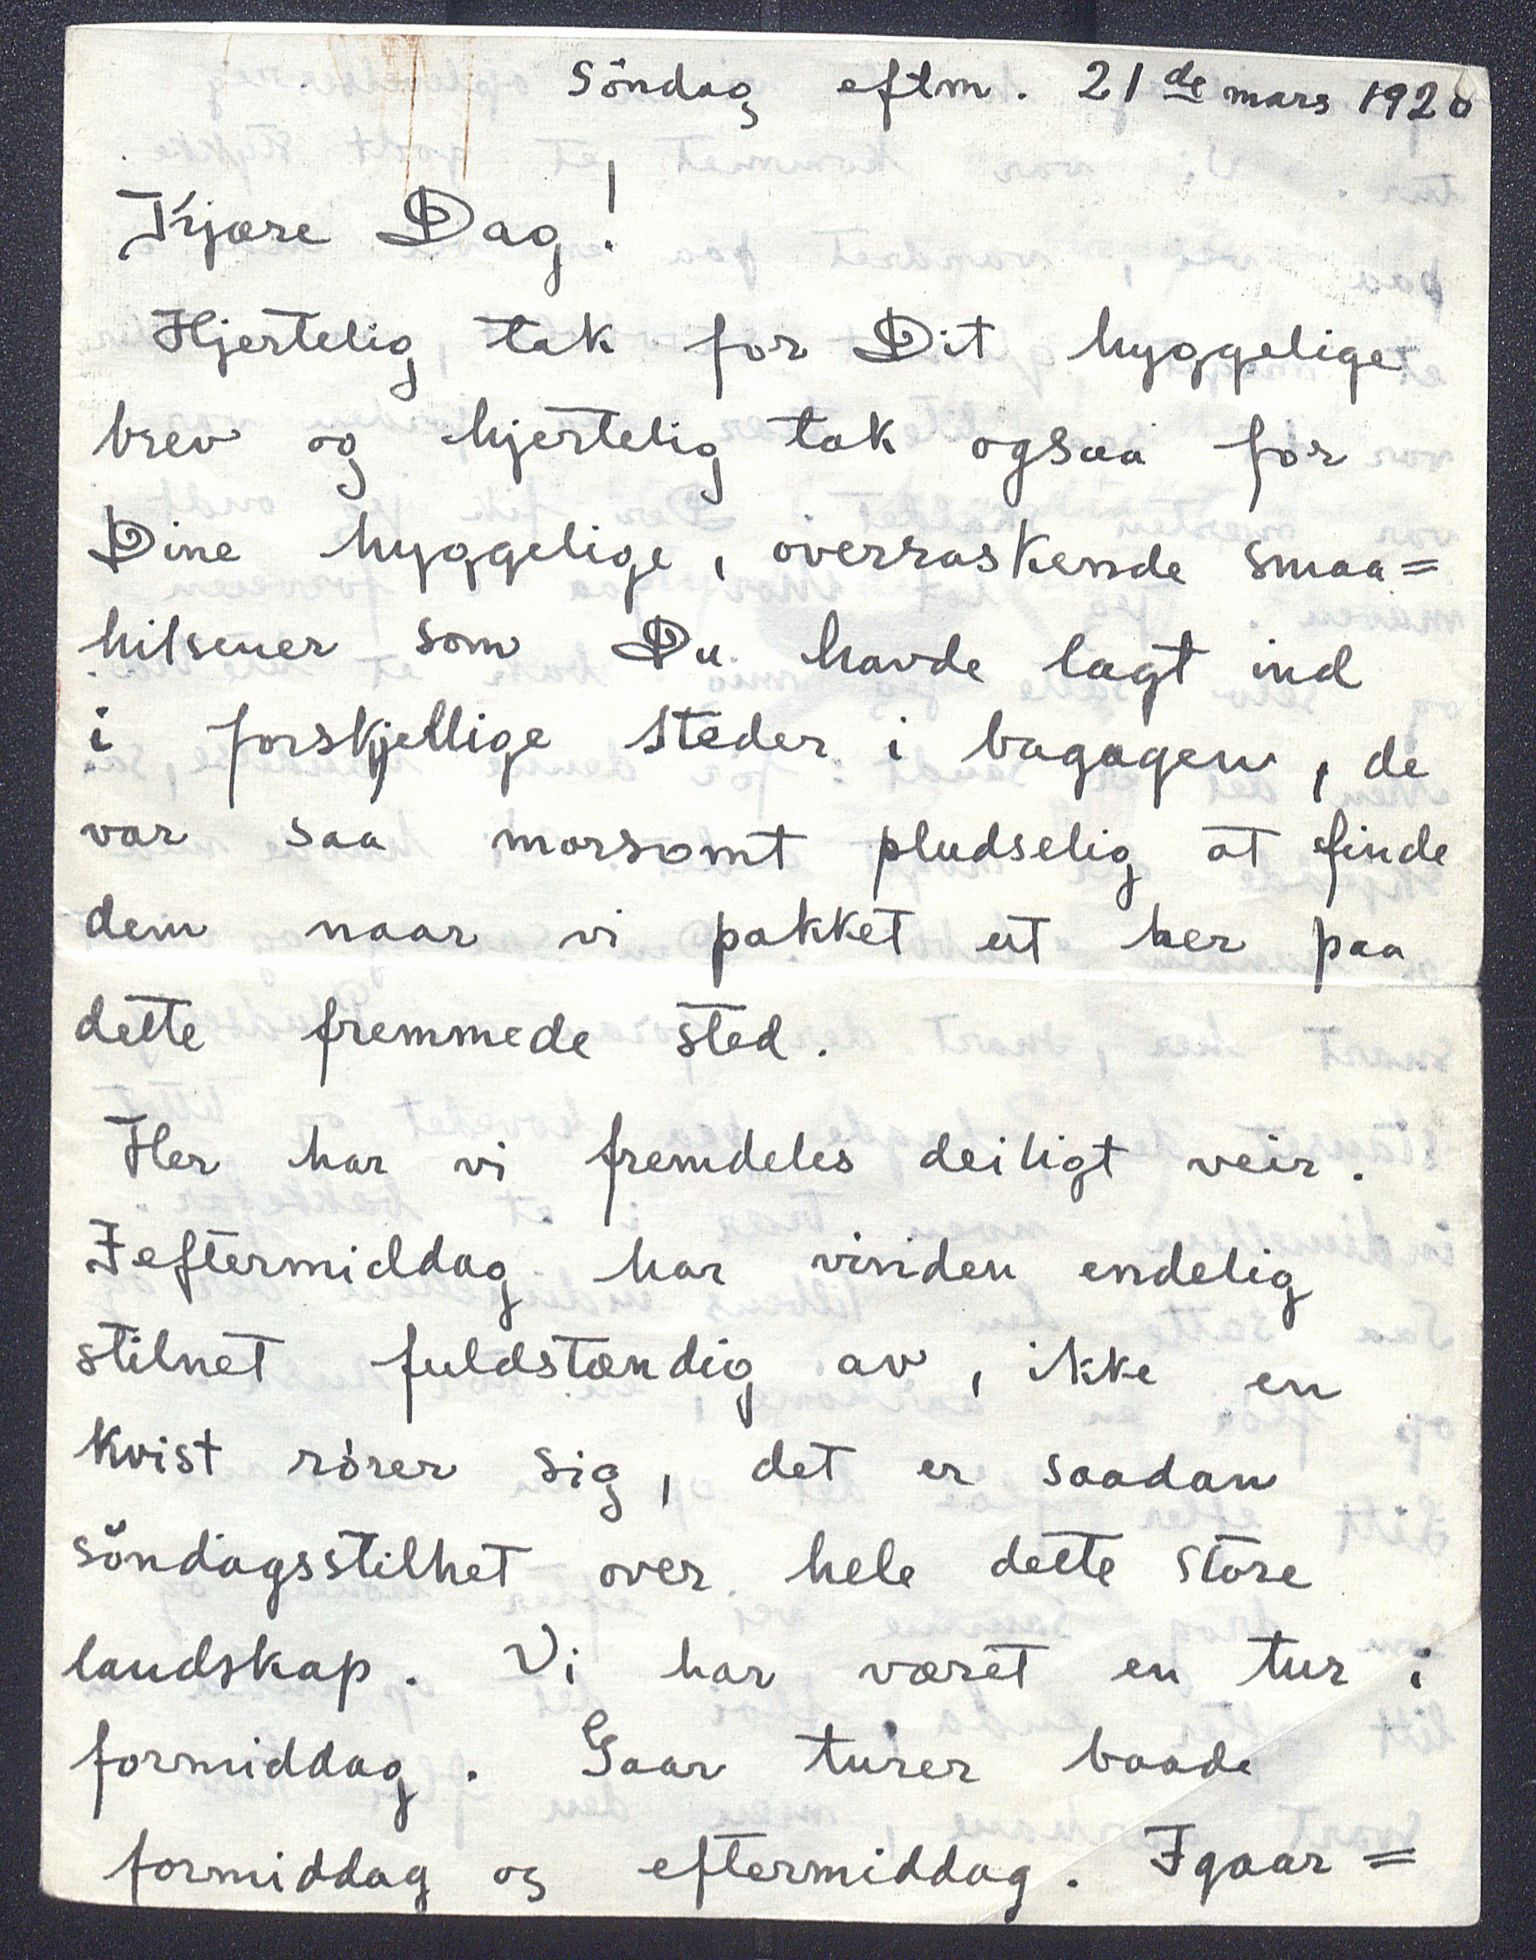 Söndag eftm. 21de mars 1920
Kjære Dag!
Hjertelig tak for Dit hyggelige
brev og hjertelig tak ogsaa for
Dine hyggelige, overraskende smaa=
hilsener som Du havde lagt ind
i forskjellige steder i bagagen, de
var saa morsomt pludselig at finde
dem naar vi pakket ut her paa
dette fremmede sted.
Her har vi fremdeles deiligt veir.
Ieftermiddag har vinden endelig
stilnet fuldstændig av, ikke en
kvist rörer sig, det er saadan
söndagsstilhet over hele dette store
landskap. Vi har været en tur i
formiddag. Gaar turer baade
formiddag og eftermiddag. Igaar=